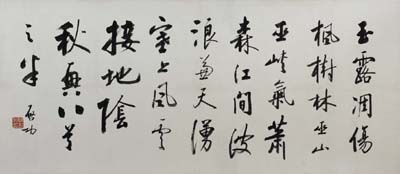 玉露凋傷
楓樹林巫山
巫峽氣蕭
森江間波
浪兼天湧
塞上風雲
接地陰
秋興八首
之半 启功